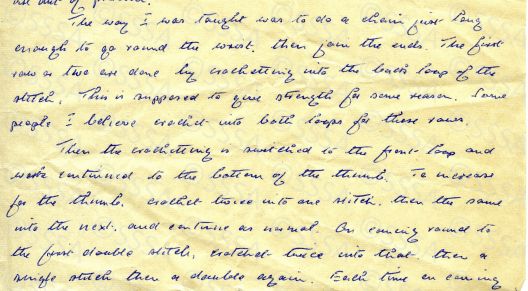 out of practice.
The way I was taught was to do a chain just long
enough to go round the wrist, then join the ends. The first
row or two are done by crochetting into the back loop of the
stitch. This is supposed to give strength for some reason. Some
people I believe crochet into both loops for these rows.
Then the crochetting is switched to the front loop and
work continued to the bottom of the thumb. To increase
for the thumb, crochet twice into one stitch, then the same
into the next, and continue as normal. On coming round to
the first double stitch, crotchet twice into that, then a
single stitch then a double again. Each time on coming